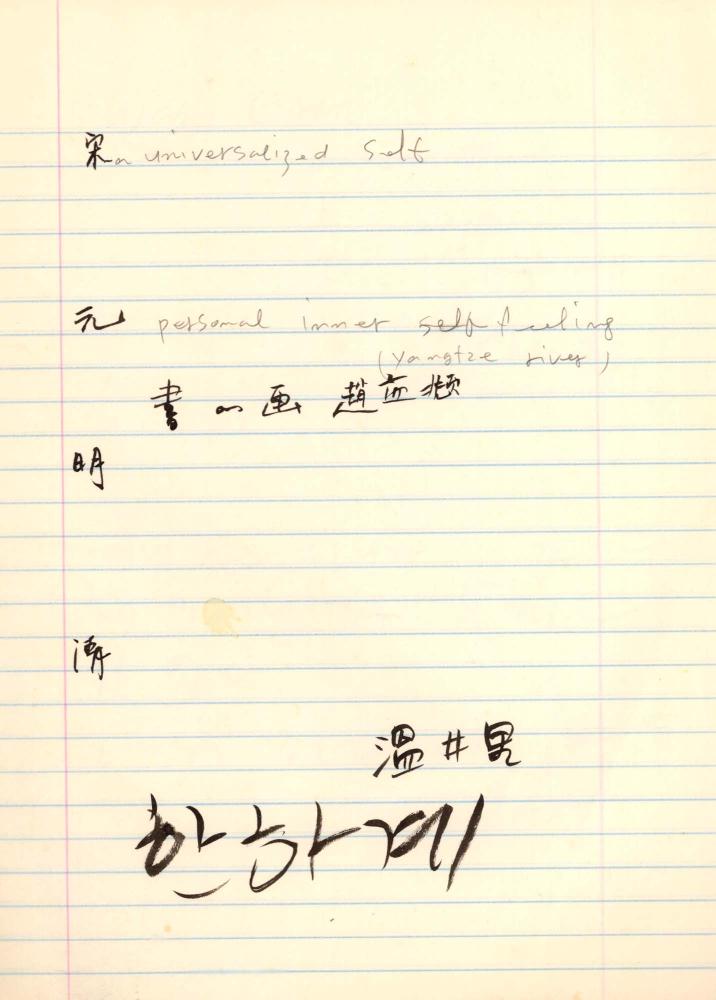 宋 a universalized self
元 personal inner self feeling
(Yangtze river)
書 画 趙孟頫
明
清
溫井里
한하계